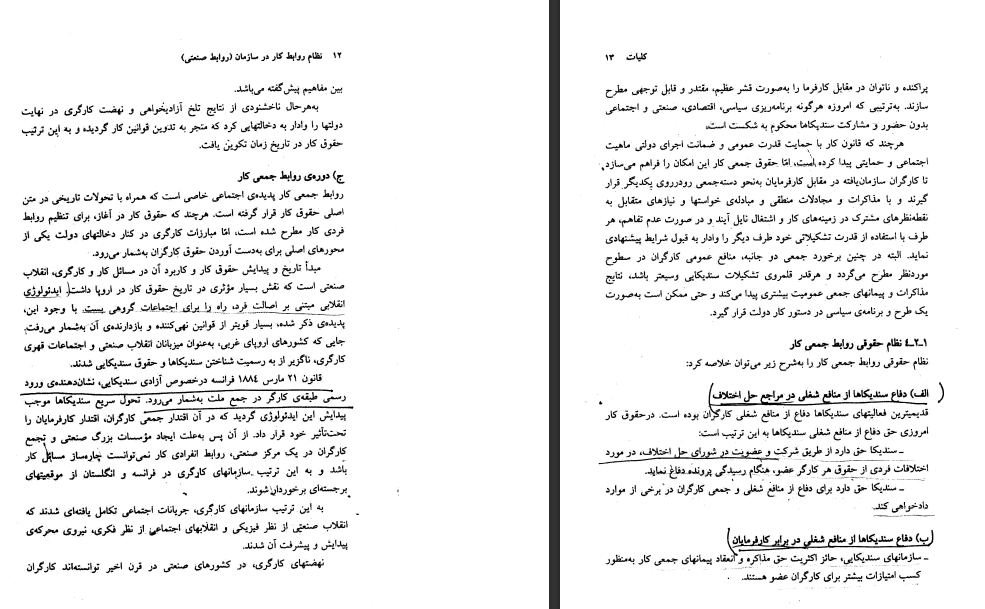 ۱۲ نظام روابط کار در سازمان (روابط صنعتی)
بین مفاهیم پیش‌گفته می‌باشد.
به‌هرحال ناخشنودی از نتایج تلخ آزادیخواهی و نهضت کارگری در نهایت
دولتها را وادار به دخالتهایی کرد که منجر به تدوین قوانین کار گردیده و به این ترتیب
حقوق کار در تاریخ زمان تکوین یافت.
ج) دوره‌ی روابط جمعی کار
روابط جمعی کار پدیده‌ی اجتماعی خاصی است که همراه با تحولات تاریخی در متن
اصلی حقوق کار قرار گرفته است. هرچند که حقوق کار در آغاز، برای تنظیم روابط
فردی کار مطرح شده است، امّا مبارزات کارگری در کنار دخالتهای دولت یکی از
محورهای اصلی برای به‌دست آوردن حقوق کارگران به‌شمار می‌رود.
مبدأ تاریخ و پیدایش حقوق کار و کاربرد آن در مسائل کار و کارگری، انقلاب
صنعتی است که نقش بسیار مؤثری در تاریخ حقوق کار در اروپا داشت. ایدئولوژی
انقلابی مبتنی بر اصالت فرد، راه را برای اجتماعات گروهی بست. با وجود این،
پدیده‌ی ذکر شده، بسیار قویتر از قوانین نهی‌کننده و بازدارنده‌ی آن به‌شمار می‌رفت.
جایی که کشورهای اروپای غربی، به‌عنوان میزبانان انقلاب صنعتی و اجتماعات قهری
کارگری، ناگزیر از به رسمیت شناختن سندیکاها و حقوق سندیکایی شدند.
قانون ۲۱ مارس ۱۸۸۴ فرانسه درخصوص آزادی سندیکایی، نشان‌دهنده‌ی ورود
رسمی طبقه‌ی کارگر در جمع ملت به‌شمار می‌رود. تحول سریع سندیکاها موجب
پیدایش این ایدئولوژی گردید که در آن اقتدار جمعی کارگران، اقتدار کارفرمایان را
تحت‌تأثیر خود قرار داد. از آن پس به‌علت ایجاد مؤسسات بزرگ صنعتی و تجمع
کارگران در یک مرکز صنعتی، روابط انفرادی کار نمی‌توانست چاره‌ساز مسائل کار
باشد و به این ترتیب سازمانهای کارگری در فرانسه و انگلستان از موقعیتهای
برجسته‌ای برخوردار شوند.
به این ترتیب سازمانهای کارگری، جریانات اجتماعی تکامل یافته‌ای شدند که
انقلاب صنعتی از نظر فیزیکی و انقلابهای اجتماعی از نظر فکری، نیروی محرکه‌ی
پیدایش و پیشرفت آن شدند.
نهضتهای کارگری، در کشورهای صنعتی در قرن اخیر توانسته‌اند کارگران
کلیات ۱۳
پراکنده و ناتوان در مقابل کارفرما را به‌صورت قشر عظیم، مقتدر و قابل توجهی مطرح
سازند. به‌ترتیبی که امروزه هرگونه برنامه‌ریزی سیاسی، اقتصادی، صنعتی و اجتماعی
بدون حضور و مشارکت سندیکاها محکوم به شکست است.
هرچند که قانون کار با حمایت قدرت عمومی و ضمانت اجرای دولتی ماهیت
اجتماعی و حمایتی پیدا کرده است، امّا حقوق جمعی کار این امکان را فراهم می‌سازد
تا کارگران سازمان‌یافته در مقابل کارفرمایان به‌نحو دسته‌جمعی رودرروی یکدیگر قرار
گیرند و با مذاکرات و مجادلات منطقی و مبادله‌ی خواستها و نیازهای متقابل به
نقطه‌نظرهای مشترک در زمینه‌های کار و اشتغال نایل آیند و در صورت عدم تفاهم، هر
طرف با استفاده از قدرت تشکیلاتی خود طرف دیگر را وادار به قبول شرایط پیشنهادی
نماید. البته در چنین برخورد جمعی دو جانبه، منافع عمومی کارگران در سطوح
موردنظر مطرح می‌گردد و هرقدر قلمروی تشکیلات سندیکایی وسیعتر باشد، نتایج
مذاکرات و پیمانهای جمعی عمومیت بیشتری پیدا می‌کند و حتی ممکن است به‌صورت
یک طرح و برنامه‌ی سیاسی در دستور کار دولت قرار گیرد.
۱–۲–۴ نظام حقوقی روابط جمعی کار
نظام حقوقی روابط جمعی کار را به‌شرح زیر می‌توان خلاصه کرد:
الف) دفاع سندیکاها از منافع شغلی در مراجع حل اختلاف
قدیمیترین فعالیتهای سندیکاها دفاع از منافع شغلی کارگران بوده است. درحقوق کار
امروزی حق دفاع از منافع شغلی سندیکاها به این ترتیب است:
ـ سندیکا حق دارد از طریق شرکت و عضویت در شورای حل اختلاف، در مورد
اختلافات فردی از حقوق هر کارگر عضو، هنگام رسیدگی پرونده دفاع نماید.
ـ سندیکا حق دارد برای دفاع از منافع شغلی و جمعی کارگران در برخی از موارد
دادخواهی کند.
ب) دفاع سندیکاها از منافع شغلی در برابر کارفرمایان
ـ سازمانهای سندیکایی، حائز اکثریت حق مذاکره و انعقاد پیمانهای جمعی کار به‌منظور
کسب امتیازات بیشتر برای کارگران عضو هستند.